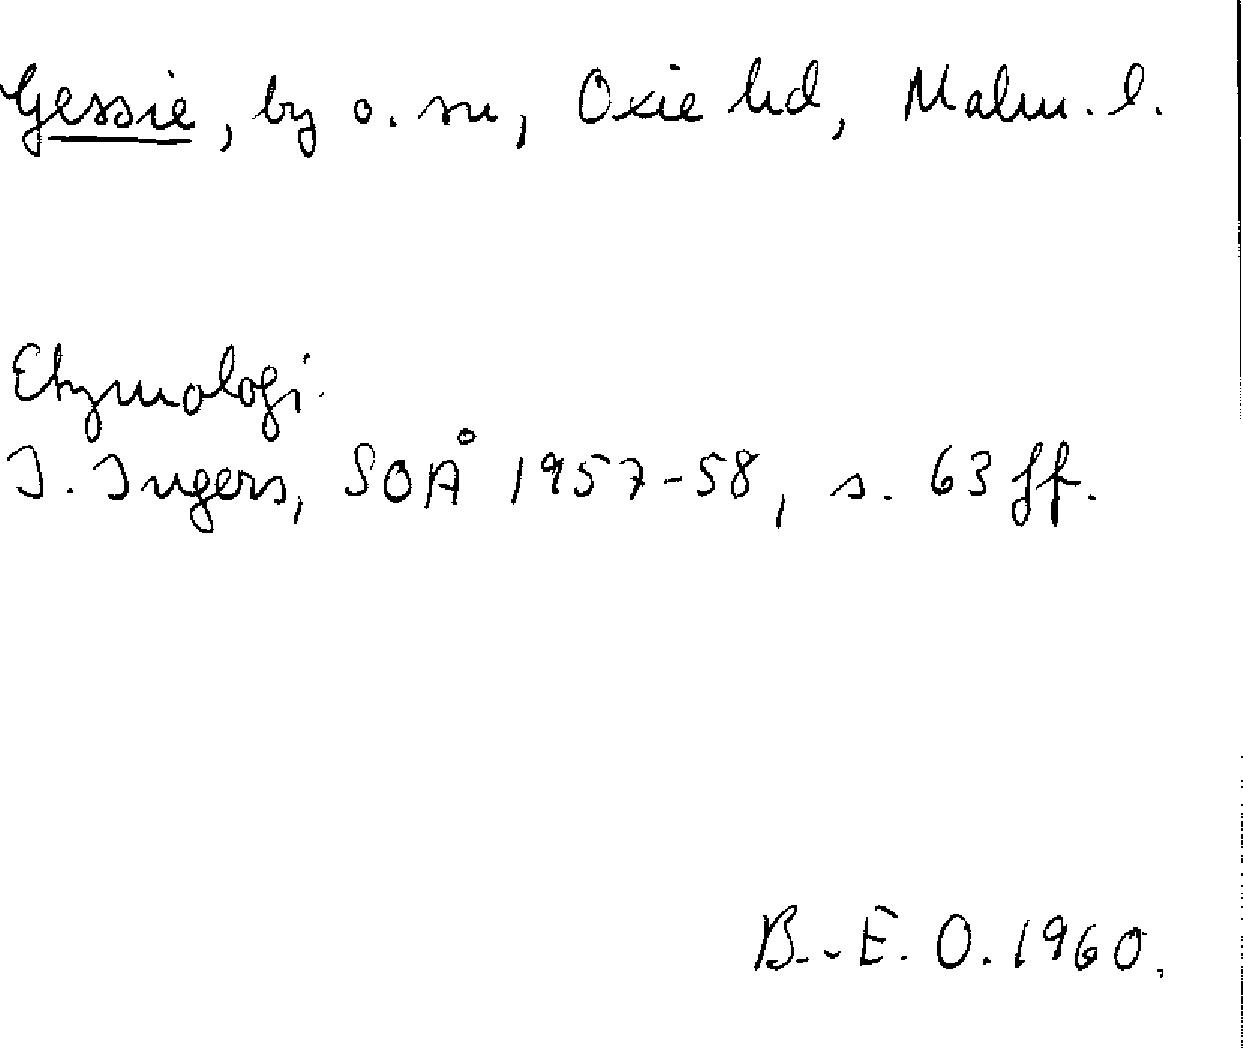 Gessie, by o. sn, Oxie hd, Malm. l.
Etymologi.
I. Ingers, SOÅ 1957-58, s. 63 ff.
B.-E. O. 1960.